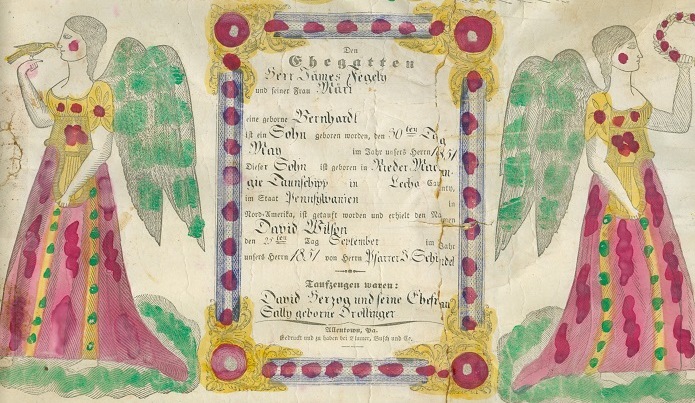 Den
Ehegatten
Herr James Fegely
und seiner Frau Märi
eine geborne Bernhardt
ist ein Sohn geboren worden, den 30ten Tag
May im Jahr unsers Herrn 1851
Dieser Sohn ist geboren in Nieder Macun-
gie Taunschipp in Lecha County,
im Staat Pennsylvanien in
Nord-Amerika, ist getauft worden und erhielt den Namen
David Wilson
den 28ten Tag September im Jahr
unsers Herrn 1851 von Herrn Pfarrer J. Schindel
Taufzeugen waren:
David Herzog und seine Ehefrau
Sally geborne Drollinger
Allentown, Pa.
Gedruckt und zu haben bei Blumer, Busch und Co.